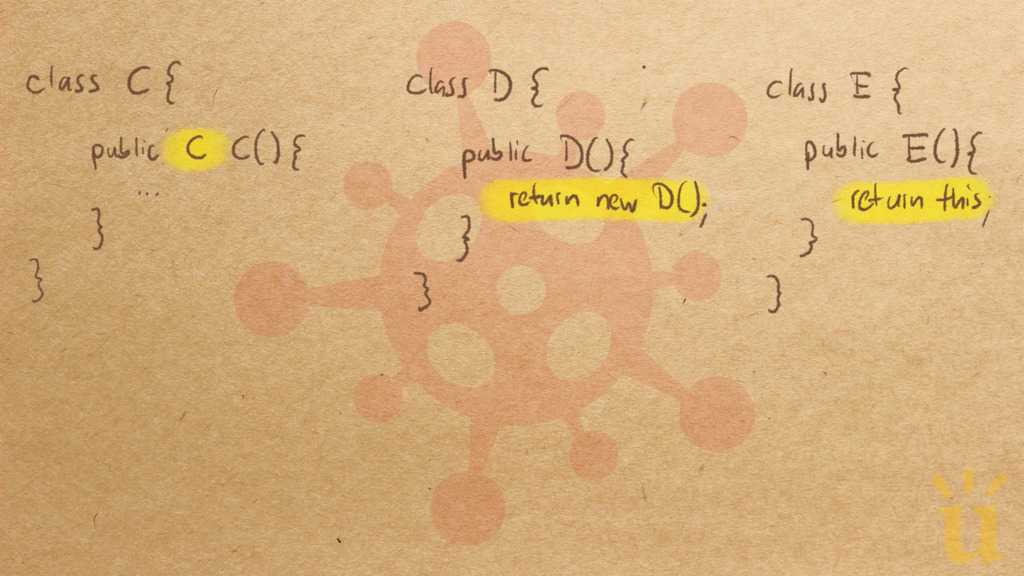 class C {
public C C(){
...
}
}
class D {
public D(){
return new D();
}
}
class E {
public E(){
return this;
}
}
ü